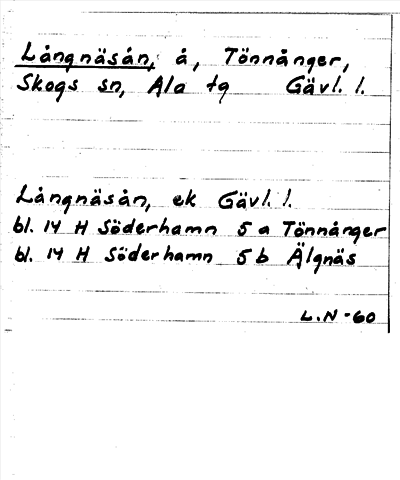 Långnäsån, å, Tönnånger,
Skogs sn, Ala tg Gävl. l.
Långnäsån, ek Gävl. l.
bl. 14 H Söderhamn 5 a Tönnånger
bl. 14 H Söderhamn 5 b Älgnäs
L.N -60